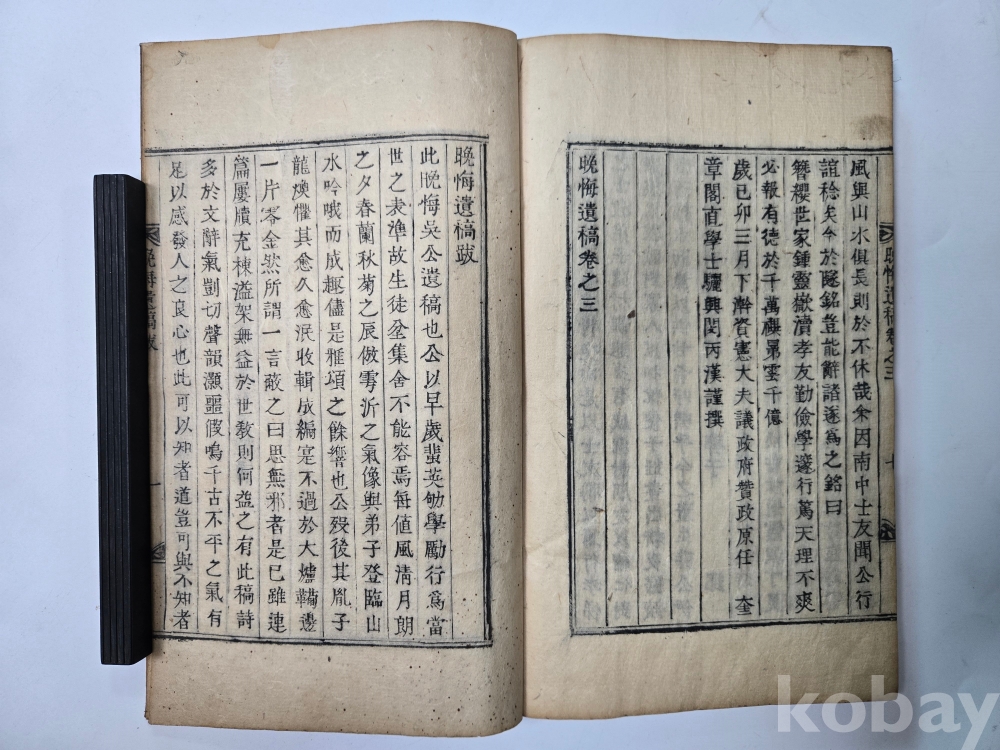 風與山水俱長則於不休哉余因南中士友聞公行
誼稔矣今於隧銘豈能辭諸遂爲之銘曰
簪纓世家鍾靈嶽瀆孝友勤儉學邃行篤天理不爽
必報有德於千萬禩昴雲千億
歲己卯三月下澣資憲大夫議政府贊政原任 奎
章閣直學士驪興閔丙漢謹撰
晚悔遺稿卷之三
晚悔遺稿卷之三
十
晚悔遺稿跋
此晚悔吳公遺稿也公以早歲蜚英劬學勵行爲當
世之表準故生徒坌集舍不能容焉每値風淸月朗
之夕春蘭秋菊之辰倣雩沂之氣像與弟子登臨山
水吟哦而成趣儘是雅頌之餘響也公歿後其胤子
龍煥懼其愈久愈泯收輯成編寔不過於大爐鞴邊
一片零金然所謂一言蔽之曰思無邪者是已雖連
篇屢牘充棟溢架無益於世敎則何益之有此稿詩
多於文辭氣剴切聲韻灝噩假鳴千古不平之氣有
足以感發人之良心也此可以知者道豈可與不知者
晚悔遺稿跋
一
kobay